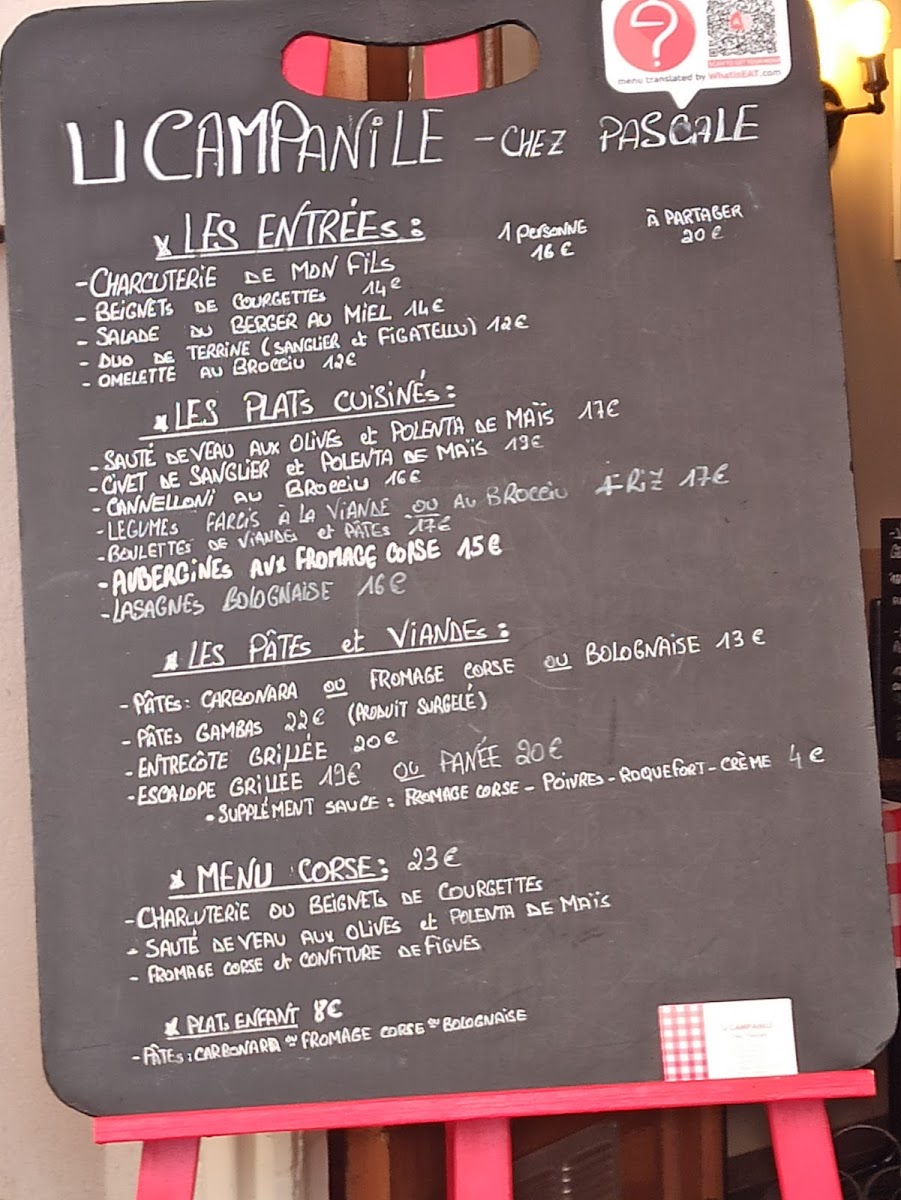 ?
SCAN TO GET YOUR MENU
menu translated by WhatiEAT.com
U CAMPANILE - CHEZ PASCALE
LES ENTRÉES :
1 PERSONNE À PARTAGER
- CHARCUTERIE DE MON FILS 16€ 20€
- BEIGNETS DE COURGETTES 14€
- SALADE DU BERGER AU MIEL 14€
- DUO DE TERRINE (SANGLIER et FIGATELLU) 12€
- OMELETTE AU BROCCIU 12€
LES PLATS CUISINÉS :
- SAUTÉ DE VEAU AUX OLIVES et POLENTA DE MAÏS 17€
- CIVET DE SANGLIER et POLENTA DE MAÏS 19€
- CANNELLONI AU BROCCIU 16€
- LÉGUMES FARCIS À LA VIANDE OU AU BROCCIU + RIZ 17€
- BOULETTES DE VIANDES et PÂTES 17€
- AUBERGINES AUX FROMAGE CORSE 15€
- LASAGNES BOLOGNAISE 16€
LES PÂTES et VIANDES :
- PÂTES : CARBONARA OU FROMAGE CORSE OU BOLOGNAISE 13€
- PÂTES GAMBAS 22€ (PRODUIT SURGELÉ)
- ENTRECÔTE GRILLÉE 20€
- ESCALOPE GRILLÉE 19€ OU PANÉE 20€
• SUPPLÉMENT SAUCE : FROMAGE CORSE - POIVRES - ROQUEFORT - CRÈME 4€
MENU CORSE : 23€
- CHARCUTERIE OU BEIGNETS DE COURGETTES
- SAUTÉ DE VEAU AUX OLIVES et POLENTA DE MAÏS
- FROMAGE CORSE et CONFITURE DE FIGUES
PLATS ENFANT 8€
- PÂTES : CARBONARA OU FROMAGE CORSE OU BOLOGNAISE
U CAMPANILE